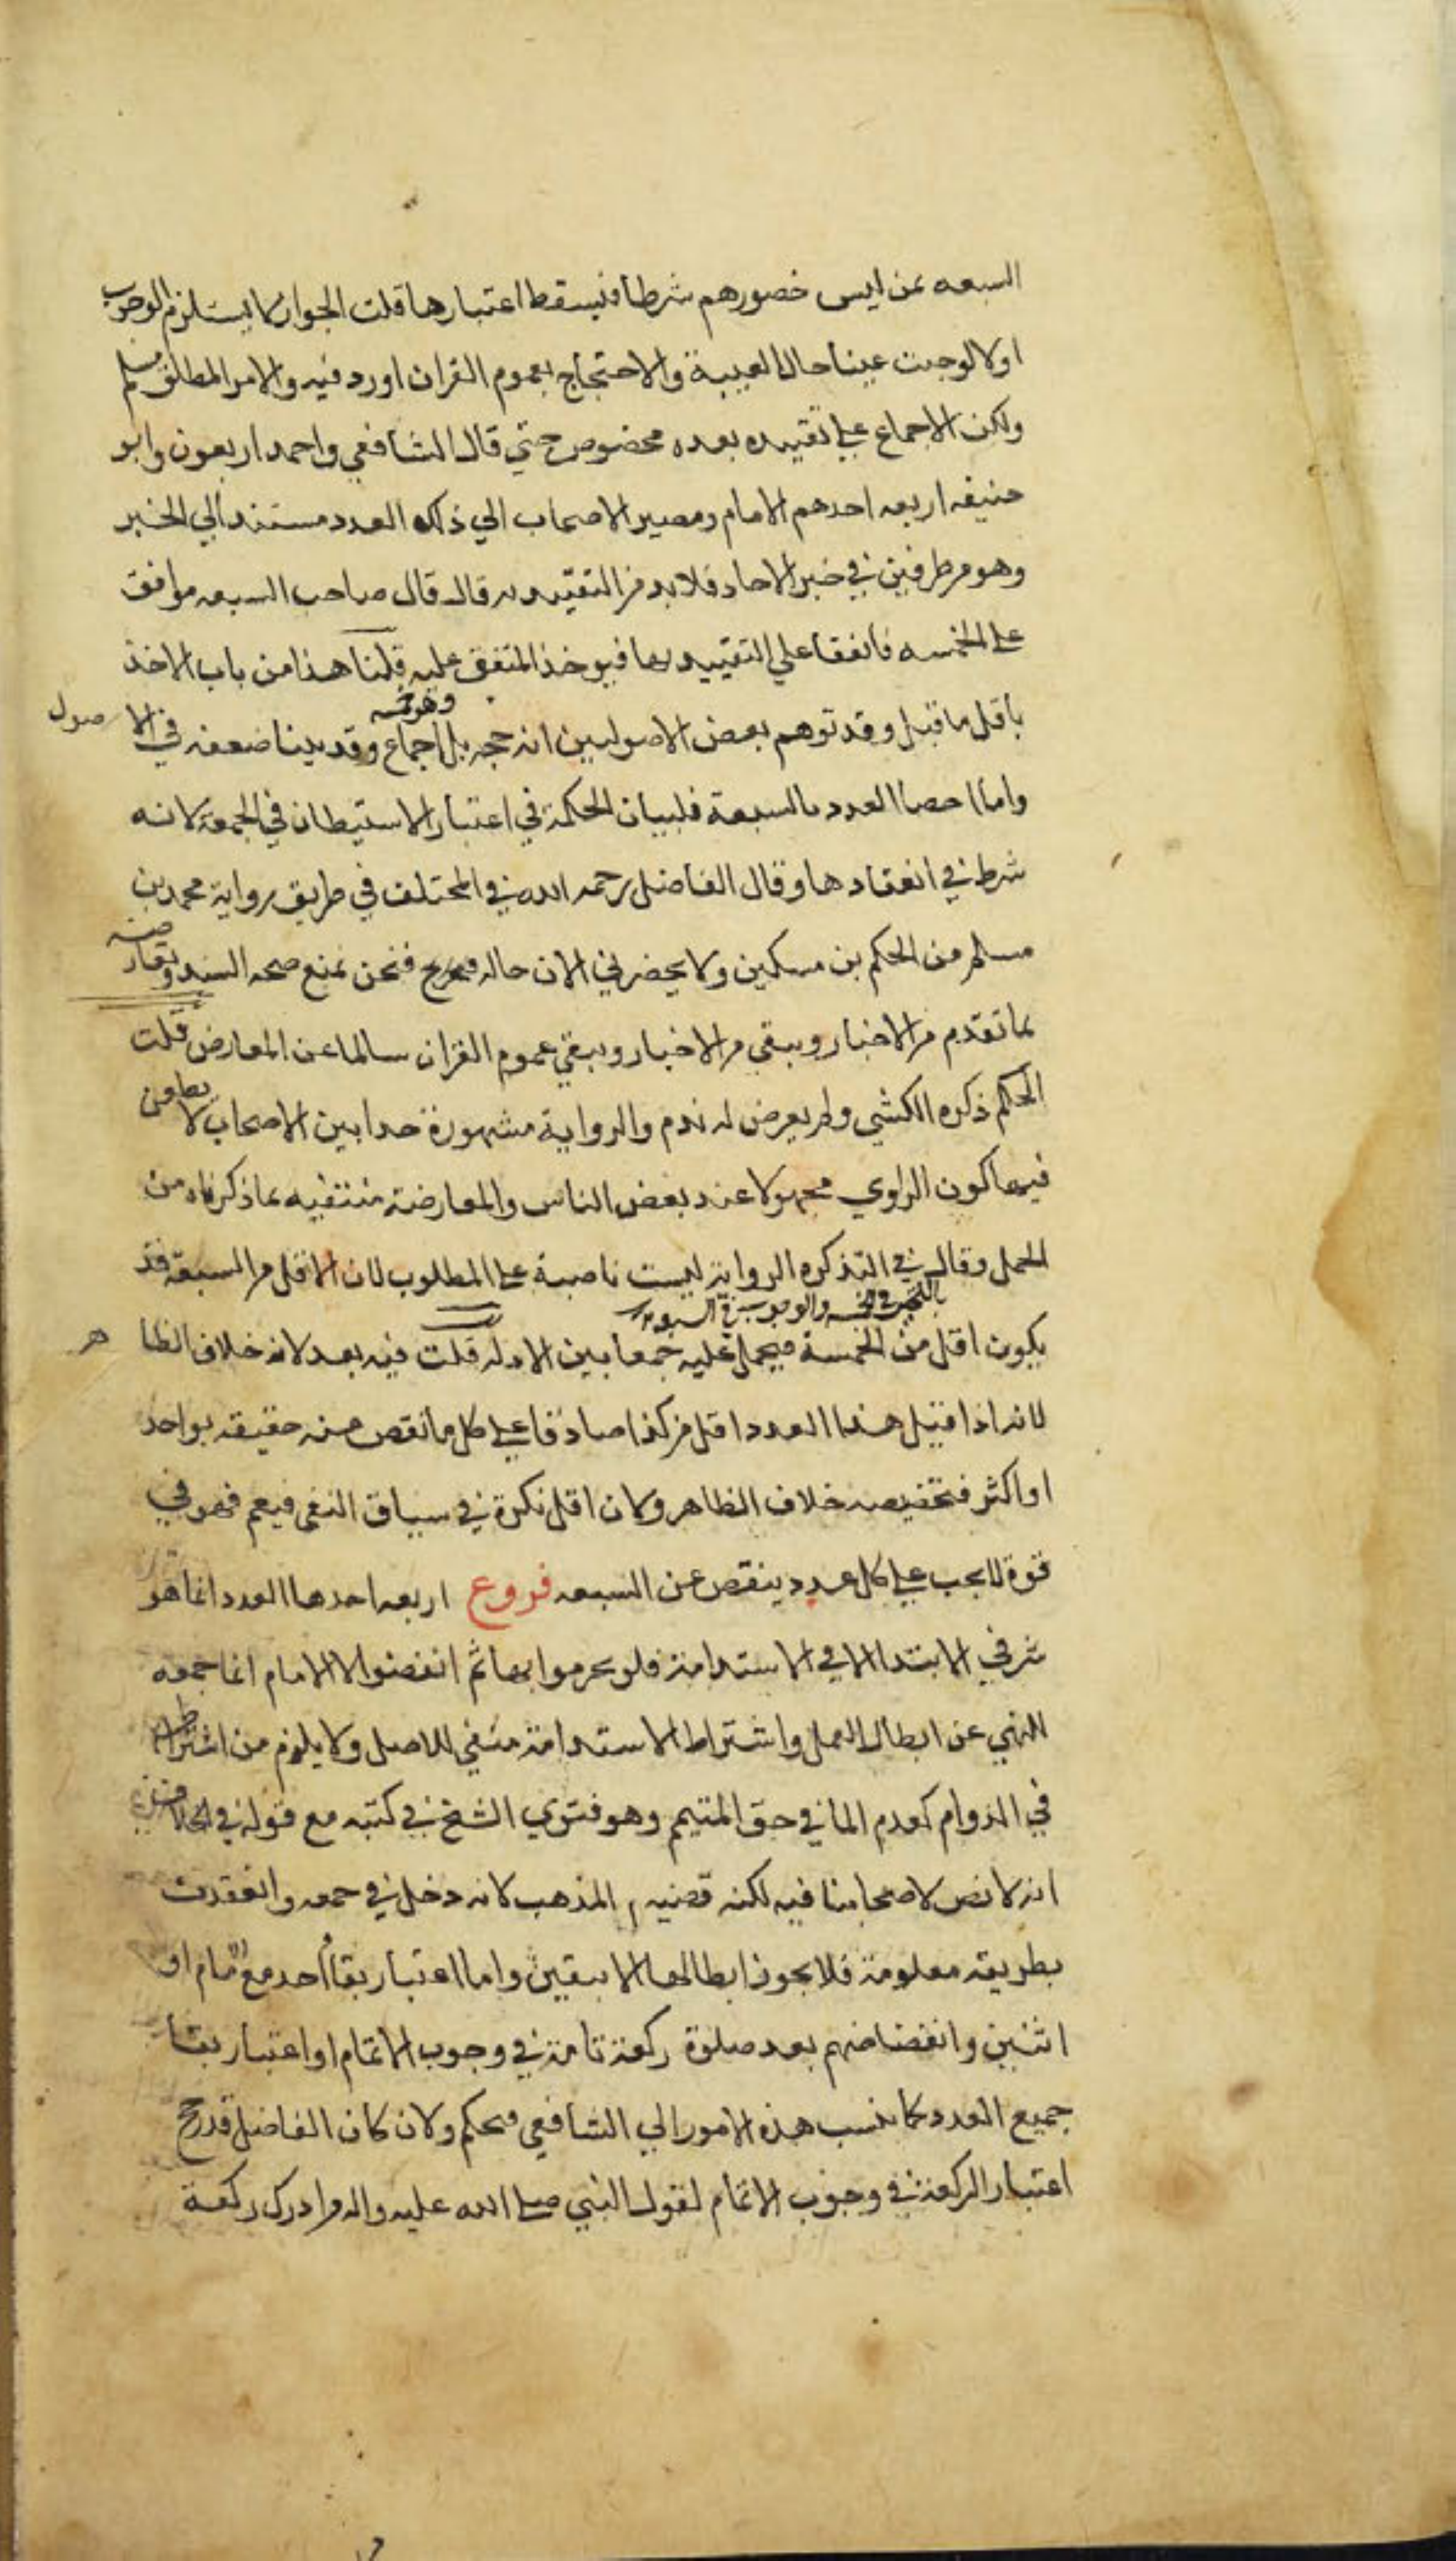 السبعه عن ليس حضورهم شرطا فيسقط اعتبارها قلت الجواز كما يستلزم الوجوب
اولا لوجبت عينا حال الغيبة والاحتجاج بعموم القران اورد فيه والامر المطلق مسلم
ولكن الاجماع على تقييده بعدد مخصوص حتي قال الشافعي واحمد اربعون وابو
حنيفه اربعه احدهم الامام ومصير الاصحاب الي ذلك العدد مستند الي الخبر
وهو من طرفين في خبر الاحاد فلا بد من التقييد به قال قال صاحب السبعه موافق
على الخمسه فاتفقا علي التقييد بها فيوخذ المتفق عليه قلنا هذا من باب الاخذ
باقل ما قيل وقد توهم بعض الاصوليين انه حجه بل اجماع وقد بينا ضعفه في الاصول
واما احصا العدد بالسبعة فلبيان الحكمة في اعتبار الاستيطان في الجمعة لانه
شرط في انعقادها وقال الفاضل رحمه الله في المختلف في طريق رواية محمد بن
مسلم من الحكم بن مسكين ولا يحضرني الان حاله فنحن نمنع صحه السند ونعارضه
بما تقدم من الاخبار ويبقى من الاخبار ويبقي عموم القران سالما عن المعارض قلت
الحكم ذكره الكشي ولم يعرض له بذم والرواية مشهورة جدا بين الاصحاب لا يطعن
فيها كون الراوي مجهولا عند بعض الناس والمعارضة منتفيه بما ذكرناه من
الحمل وقال في التذكره الرواية ليست ناصة على المطلوب لان الاقل من السبعة قد
يكون اقل من الخمسة فيحمل عليه جمعا بين الادله قلت فيه بعد لانه خلاف الظاهر
لانه اذا قيل هذا العدد اقل من كذا صادقا على كل ما نقص عنه حقيقه بواحد
او اكثر فتخصيصه خلاف الظاهر وكان اقل نكرة في سياق النفي فيعم فهو في
قوة لا يجب على كل عدد ينقص عن السبعه فروع اربعه احدها العدد انما هو
شر في الابتدا لا في الاستدامة فلو تحرموا بها ثم انفضوا الا الامام اتما جمعه
للنهي عن ابطال العمل واشتراط الاستدامة منفي للاصل ولا يلزم من اشتراط
في الدوام كعدم الما في حق المتيمم وهو فتوي الشيخ في كتبه مع قوله في الخلاف
انه لا نص لاصحابنا فيه لكنه قضيه المذهب لانه دخل في جمعه وانعقدت
بطريقه معلومة فلا يجوز ابطالها الا بيقين واما اعتبار بقا احد مع الامام او
اثنين وانفضاضهم بعد صلوة ركعة تامة في وجوب الاتمام او اعتبار بقا
جميع العدد كما نسب هذه الامور الي الشافعي فتحكم ولان كان الفاضل قد رجح
اعتبار الركعة في وجوب الاتمام لقول النبي صلى الله عليه واله من ادرك ركعة